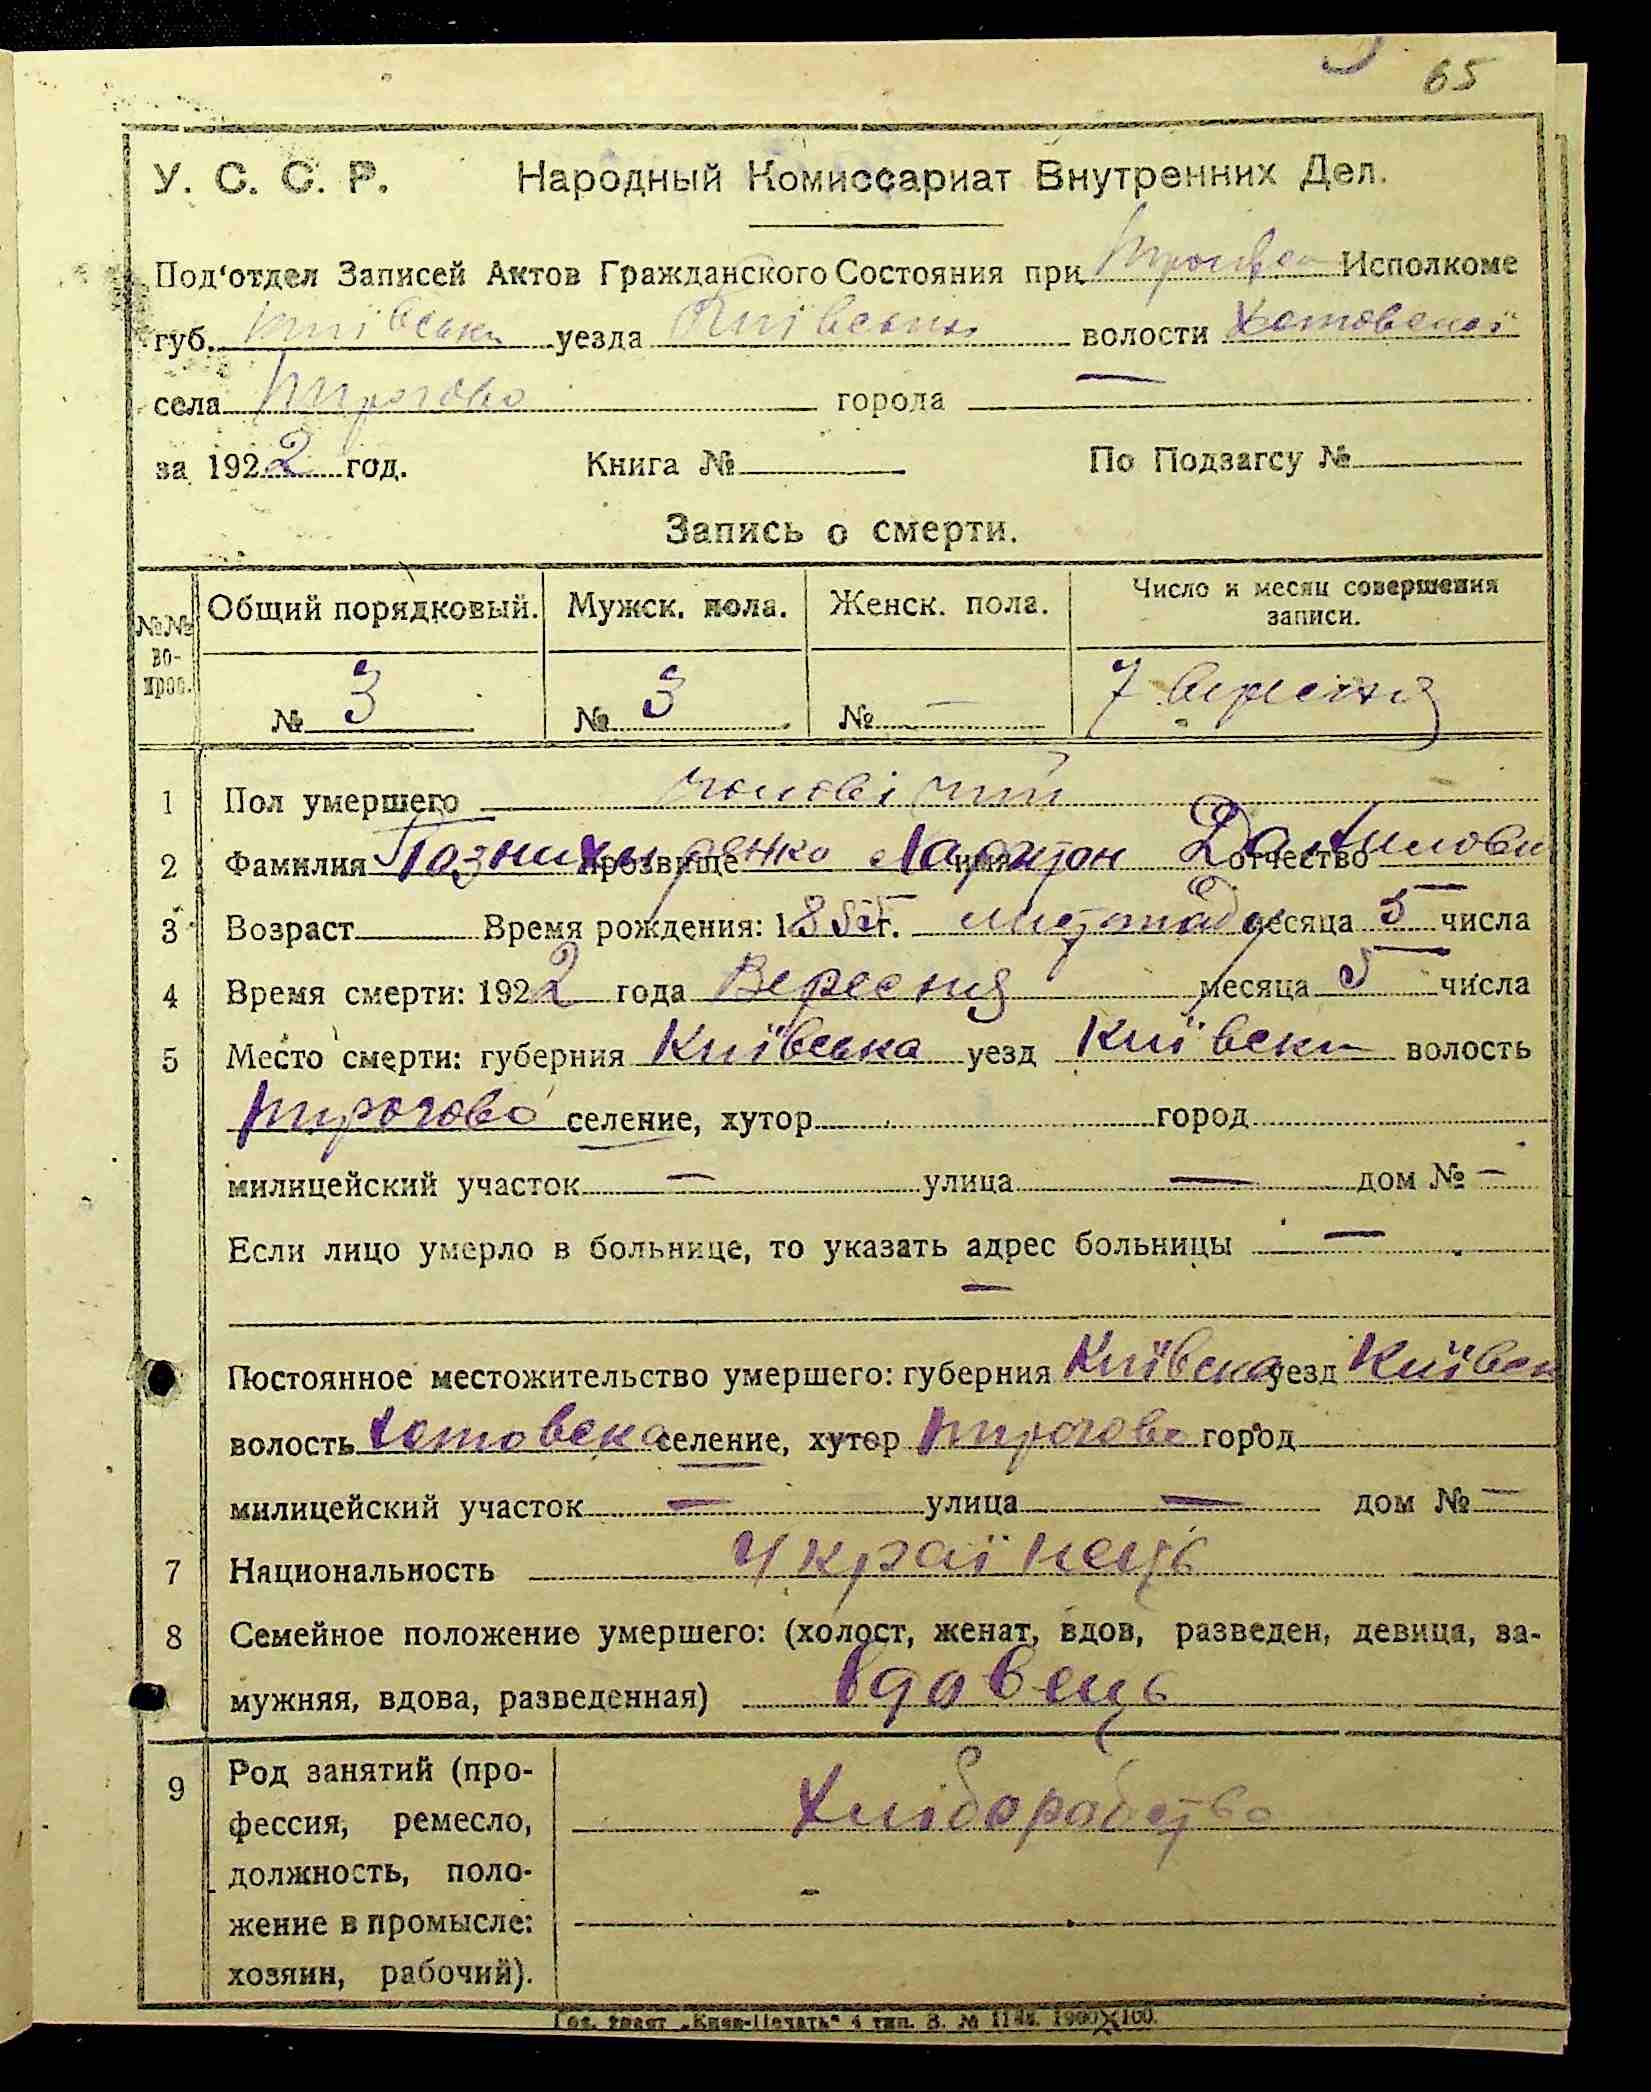 65
У. С. С. Р. Народный Комиссариат Внутренних Дел.
Под'отдел Записей Актов Гражданского Состояния при Исполкоме
губ. Київськи уезда Київськи волости Хотовської
села Пирогово города —
за 1922 год. Книга № По Подзагсу №
Запись о смерти.
№№ вопрос. Общий порядковый. Мужск. пола. Женск. пола. Число и месяц совершения записи.
№ 3 № 3 № — 7 вересня
1 Пол умершего чоловічий
2 Фамилия прозвище имя Ларитон отчество Данилови
3 Возраст Время рождения: 18 г. листопаду месяца 5 числа
4 Время смерти: 1922 года Вересня месяца 5 числа
5 Место смерти: губерния Київська уезд Київски волость
Пирогово селение, хутор город
милицейский участок — улица — дом № —
Если лицо умерло в больнице, то указать адрес больницы —
—
Постоянное местожительство умершего: губерния Київска уезд Київск
волость Хотовска селение, хутор Пирогово город
милицейский участок — улица — дом № —
7 Национальность Українець
8 Семейное положение умершего: (холост, женат, вдов, разведен, девица, за-
мужняя, вдова, разведенная) Вдовець
9 Род занятий (про-
фессия, ремесло, Хліборобство
должность, поло-
жение в промысле: —
хозяин, рабочий).
„Киев-Печать" 4 тип. З. №